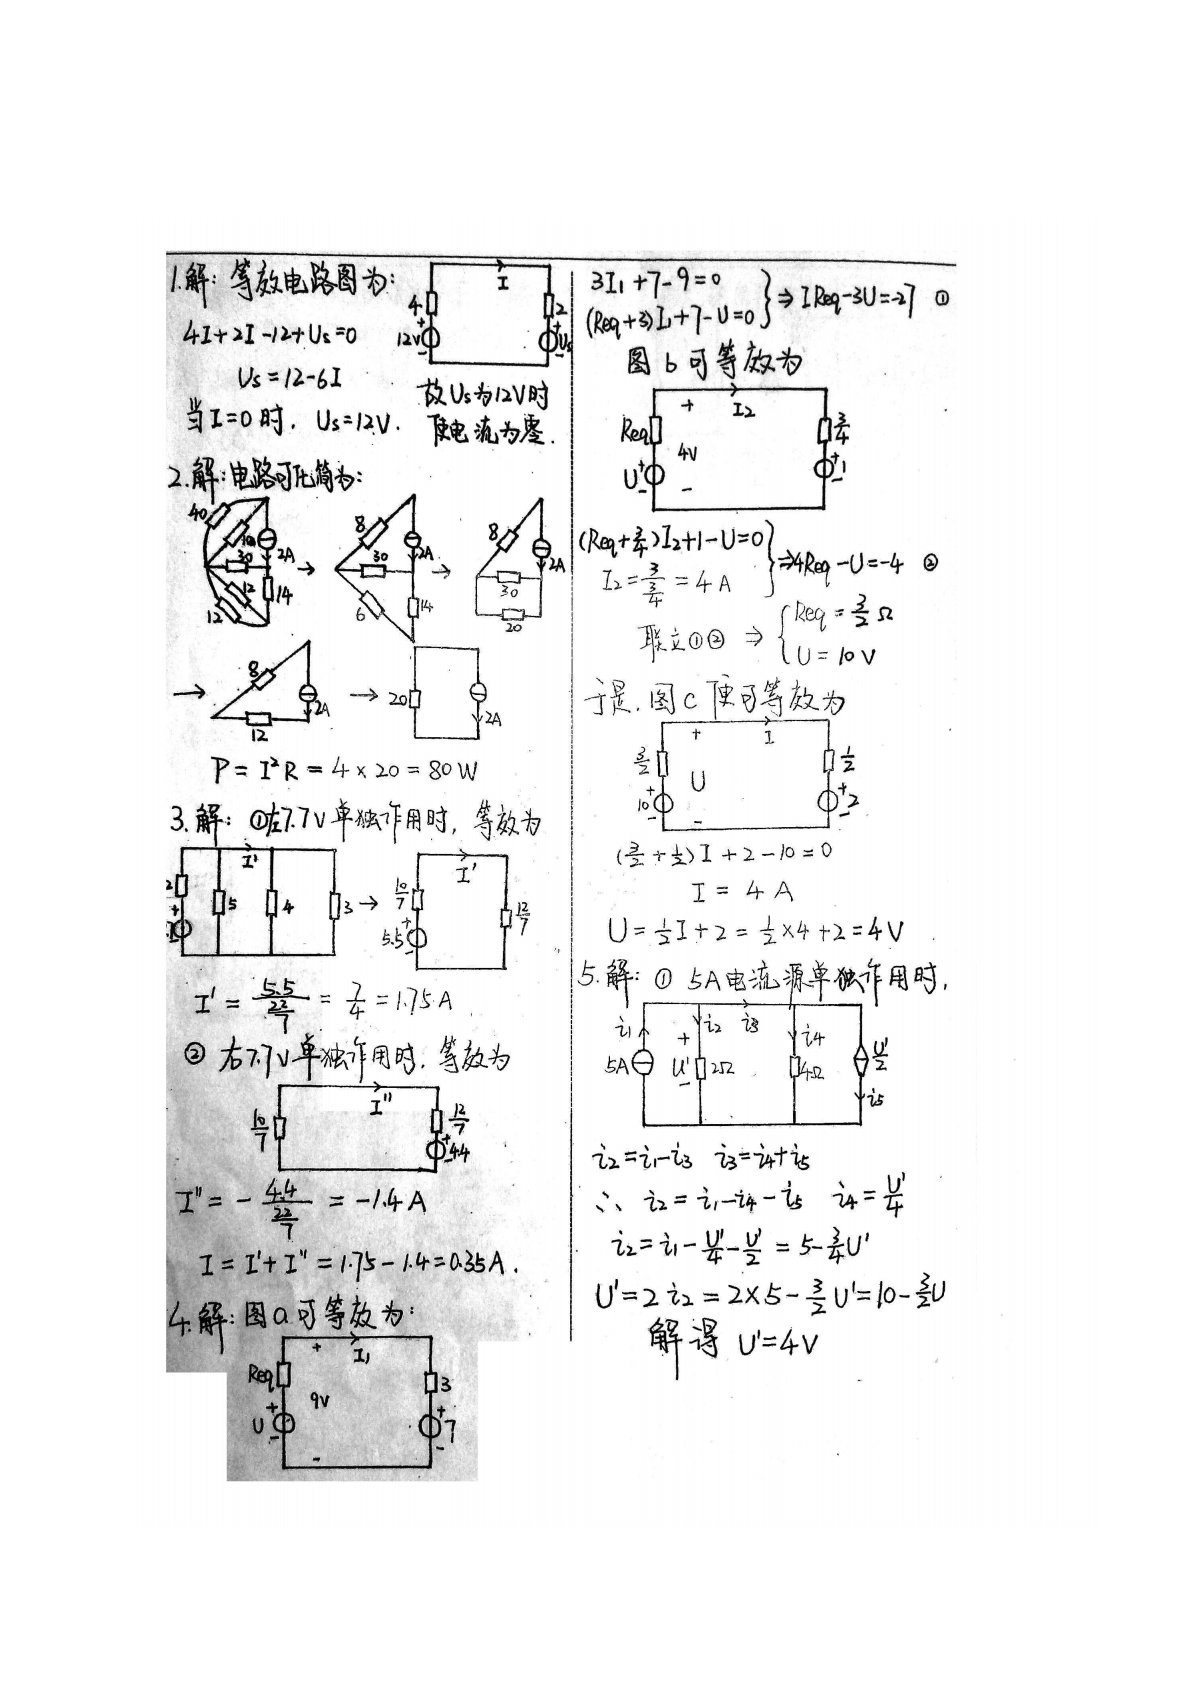 1.解：等效电路图为：
I
4
2
12V
+
-
+
Us
-
4I+2I-12+Us=0
Us=12-6I
当I=0时，Us=12V．
故Us为12V时
使电流为零．
2.解：电路可化简为：
40
10
30
2A
12
12
14
→
8
30
2A
6
14
→
8
2A
30
20
→
8
2A
12
→
20
2A
P=I²R=4×20=80W
3.解：①左7.7V单独作用时，等效为
I'
2
+
5
4
3
→
I'
10/7
5.5
+
-
12/7
I'=5.5/(22/7)=7/4=1.75A
②右7.7V单独作用时，等效为
I''
10/7
12/7
+
4.4
-
I''=-4.4/(22/7)=-1.4A
I=I'+I''=1.75-1.4=0.35A．
4.解：图a可等效为：
+
I₁
Req
3
9V
U
+
-
+
7
-
-
3I₁+7-9=0
(Req+3)I₁+7-U=0
}⇒IReq-3U=-27 ①
图b可等效为
+
I₂
Req
3/4
4V
U
+
-
+
1
-
-
(Req+3/4)I₂+1-U=0
I₂=3/(3/4)=4A
}⇒4Req-U=-4 ②
联立①②⇒{Req=3/2Ω
U=10V
于是，图c便可等效为
+
I
3/2
1/2
U
10
+
-
+
2
-
-
(3/2+1/2)I+2-10=0
I=4A
U=1/2I+2=1/2×4+2=4V
5.解：①5A电流源单独作用时，
i₁
i₂
i₃
i₄
5A
+
U'
-
2Ω
4Ω
U'/2
i₅
i₂=i₁-i₃ i₃=i₄+i₅
∴ i₂=i₁-i₄-i₅ i₄=U'/4
i₂=i₁-U'/4-U'/2=5-3/4U'
U'=2i₂=2×5-3/2U'=10-3/2U
解得 U'=4V